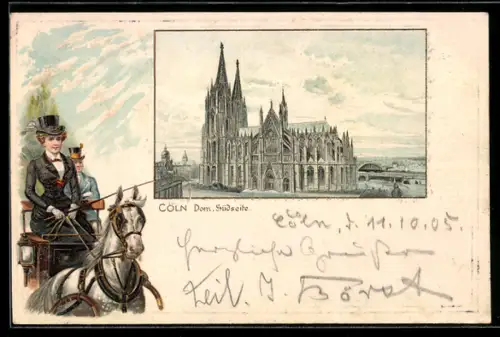 CÖLN Dom. Südseite.
Cöln, d. 11.10.05.
Herzliche Grüße
J. Börst